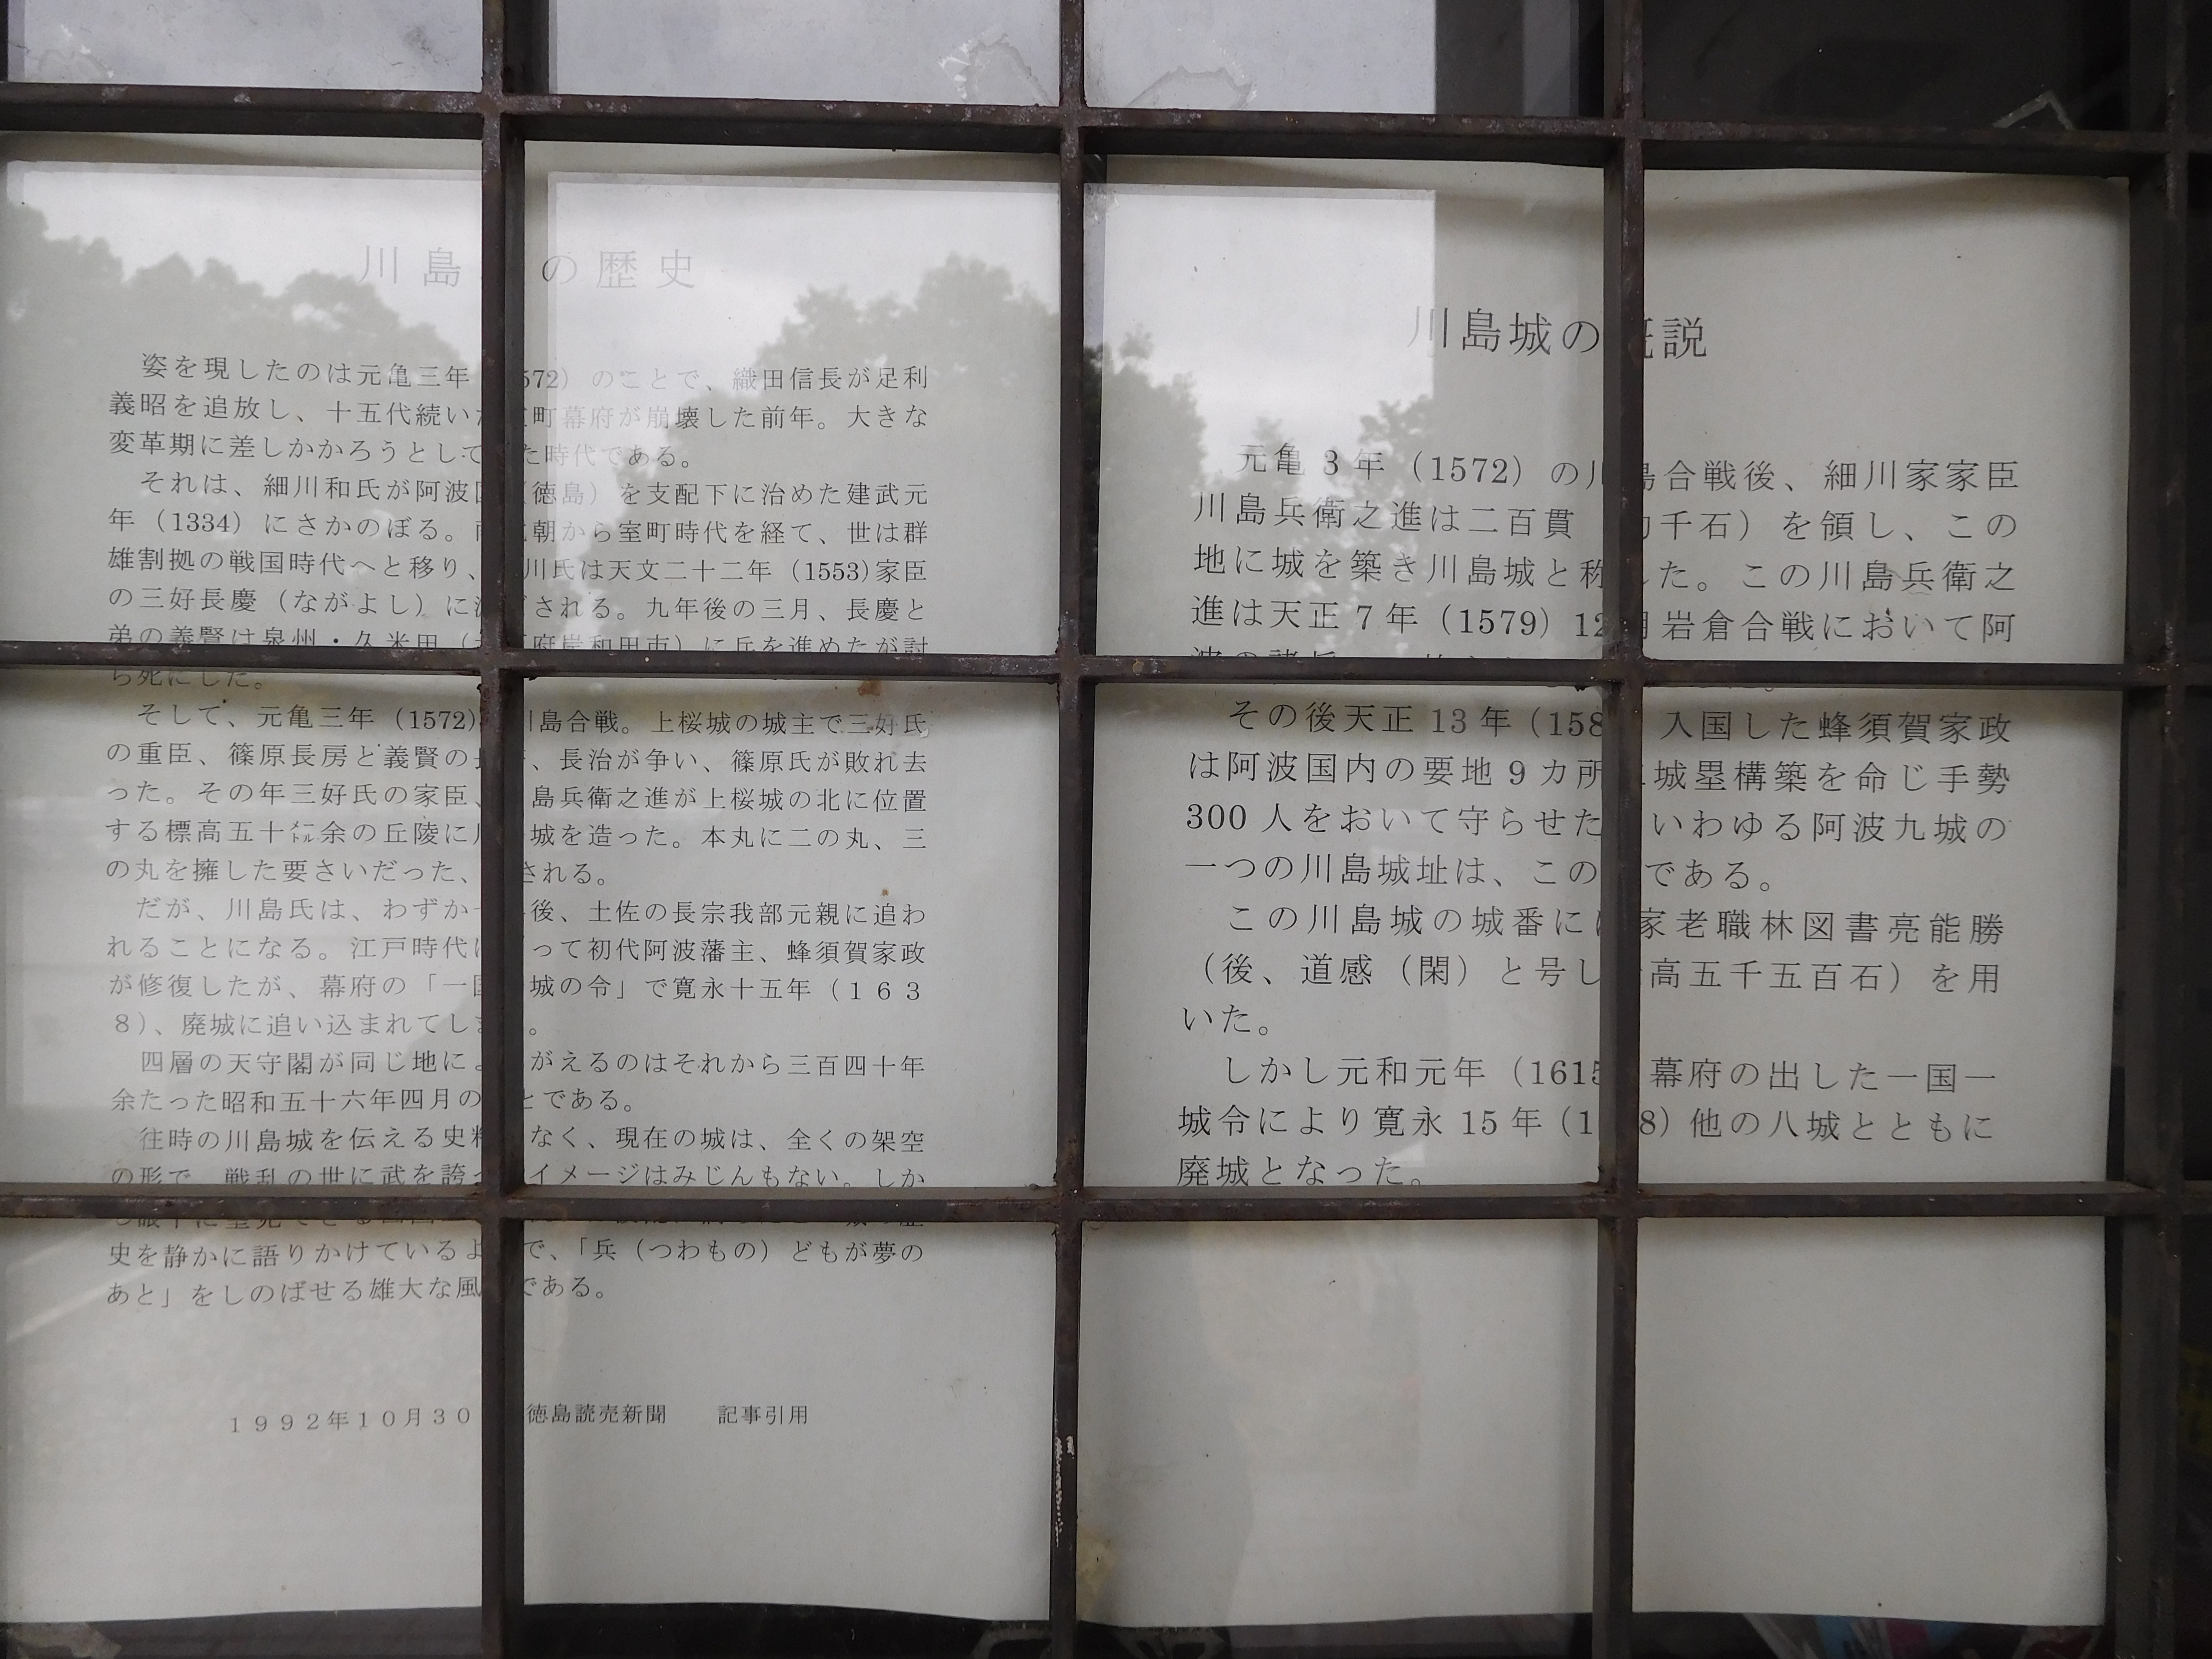 川島 の歴史
姿を現したのは元亀三年 572）のことで、織田信長が足利
義昭を追放し、十五代続いた 町幕府が崩壊した前年。大きな
変革期に差しかかろうとして た時代である。
それは、細川和氏が阿波国（徳島）を支配下に治めた建武元
年（1334）にさかのぼる。南 朝から室町時代を経て、世は群
雄割拠の戦国時代へと移り、 川氏は天文二十二年（1553)家臣
の三好長慶（ながよし）に される。九年後の三月、長慶と
弟の義賢は泉州・久米田（ 府岸和田市）に兵を進めたが討
ち死にした。
そして、元亀三年（1572) 川島合戦。上桜城の城主で三好氏
の重臣、篠原長房と義賢の長 、長治が争い、篠原氏が敗れ去
った。その年三好氏の家臣、 島兵衛之進が上桜城の北に位置
する標高五十㍍余の丘陵に川 城を造った。本丸に二の丸、三
の丸を擁した要さいだった、 される。
だが、川島氏は、わずか 後、土佐の長宗我部元親に追わ
れることになる。江戸時代に って初代阿波藩主、蜂須賀家政
が修復したが、幕府の「一国 城の令」で寛永十五年（１６３
８）、廃城に追い込まれてしま 。
四層の天守閣が同じ地によ がえるのはそれから三百四十年
余たった昭和五十六年四月の ことである。
往時の川島城を伝える史料 なく、現在の城は、全くの架空
の形で、戦乱の世に武を誇っ イメージはみじんもない。しか
史を静かに語りかけているよ で、「兵（つわもの）どもが夢の
あと」をしのばせる雄大な風 である。
１９９２年１０月３０ 徳島読売新聞　記事引用
川島城の 概説
元亀 3 年（1572）の川島合戦後、細川家家臣
川島兵衛之進は二百貫 千石）を領し、この
地に城を築き川島城と称した。この川島兵衛之
進は天正 7 年（1579）12月岩倉合戦において阿
その後天正 13 年（158 入国した蜂須賀家政
は阿波国内の要地 9 カ所 城塁構築を命じ手勢
300 人をおいて守らせた いわゆる阿波九城の
一つの川島城址は、この である。
この川島城の城番には 家老職林図書亮能勝
（後、道感（閑）と号し 高五千五百石）を用
いた。
しかし元和元年（1615 幕府の出した一国一
城令により寛永 15 年（1 8）他の八城とともに
廃城となった。